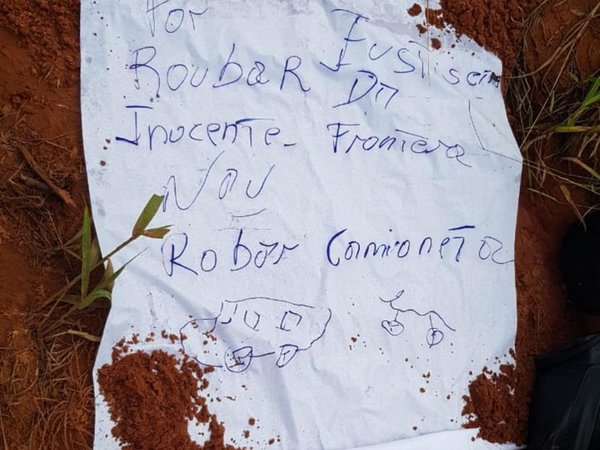 Por
ROUBAR Da
Inocente_ Frontera
Nou
Robar Camioneta